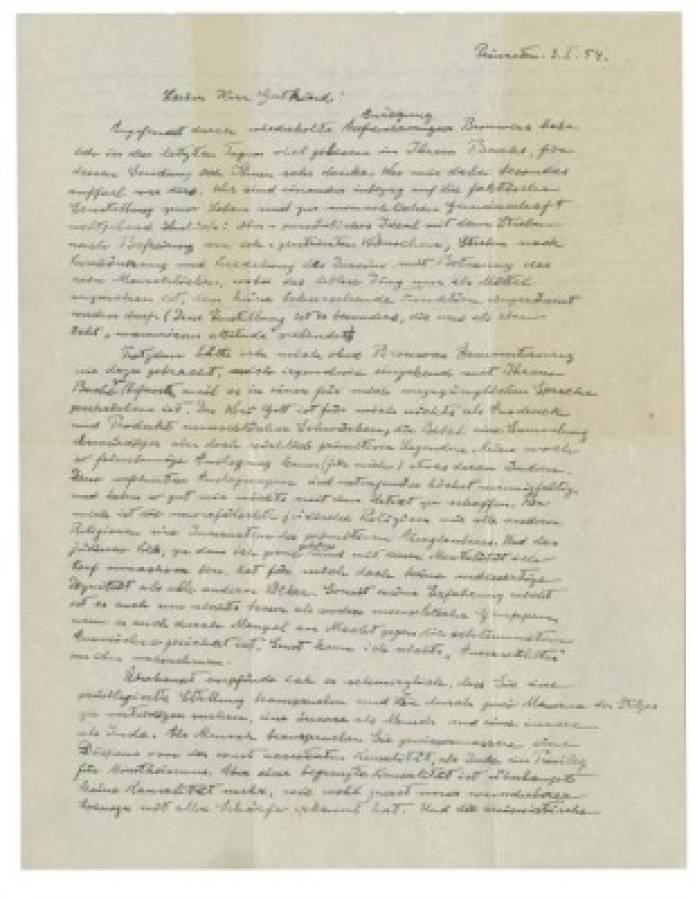 Princeton. 3. I. 54.
Lieber Herr Gutkind!
Anregung
Angefeuert durch wiederholte Brouwers habe
ich in den letzten Tagen viel gelesen in Ihrem Buche, für
dessen Sendung ich Ihnen sehr danke. Was mir dabei besonders
auffiel war dies. Wir sind einander inbezug auf die faktische
Einstellung zum Leben und zur menschlichen Gemeinschaft
weitgehend ähnlich: persönliches Ideal mit dem Streben
nach Befreiung von ich-zentrierten Wünschen, Streben nach
Verschönerung und Veredelung des Daseins mit Betonung des
rein Menschlichen, wobei das Ding nur als Mittel
anzusehen ist, dem keine beherrschende Funktion eingeräumt
werden darf. (Diese Einstellung ist es besonders, die uns als ein
echt „unamerican attitude" verbindet)
Trotzdem hätte ich mich ohne Brouwers Ermunterung
nie dazu gebracht, mich irgendwie eingehend mit Ihrem
Buche zu befassen, weil es in einer für mich unzugänglichen Sprache
geschrieben ist. Das Wort Gott ist für mich nichts als Ausdruck
und Produkt menschlicher Schwächen, die Bibel eine Sammlung
ehrwürdiger aber doch reichlich primitiver Legenden. Keine noch
so feinsinnige Auslegung kann (für mich) etwas daran ändern.
Diese verfeinerten Auslegungen sind naturgemäss höchst mannigfaltig
und haben so gut wie nichts mit dem Urtext zu schaffen. Für
mich ist die unverfälschte jüdische Religion wie alle anderen
Religionen eine Incarnation des primitiven Aberglaubens. Und das
jüdische Volk, zu dem ich gern gehöre und mit dessen Mentalität ich
tief verwachsen bin, hat für mich doch keine andersartige
Dignität als alle anderen Völker. Soweit meine Erfahrung reicht
ist es auch um nichts besser als andere menschliche Gruppen,
wenn es auch durch Mangel an Macht gegen die schlimmsten
Auswüchse gesichert ist. Sonst kann ich nichts „Auserwähltes"
an ihm wahrnehmen.
Überhaupt empfinde ich es schmerzlich, dass Sie eine
privilegierte Stellung beanspruchen und sie durch zwei Mauern des Stolzes
zu verteidigen suchen, eine äussere als Mensch und eine innere
als Jude. Als Mensch beanspruchen Sie gewissermassen einen
Dispens von der sonst acceptierten Kausalität, als Jude ein Privileg
für Monotheismus. Aber eine begrenzte Kausalität ist überhaupt
keine Kausalität mehr, wie wohl zuerst unser wunderbarer
Spinoza mit aller Schärfe erkannt hat. Und die animistische